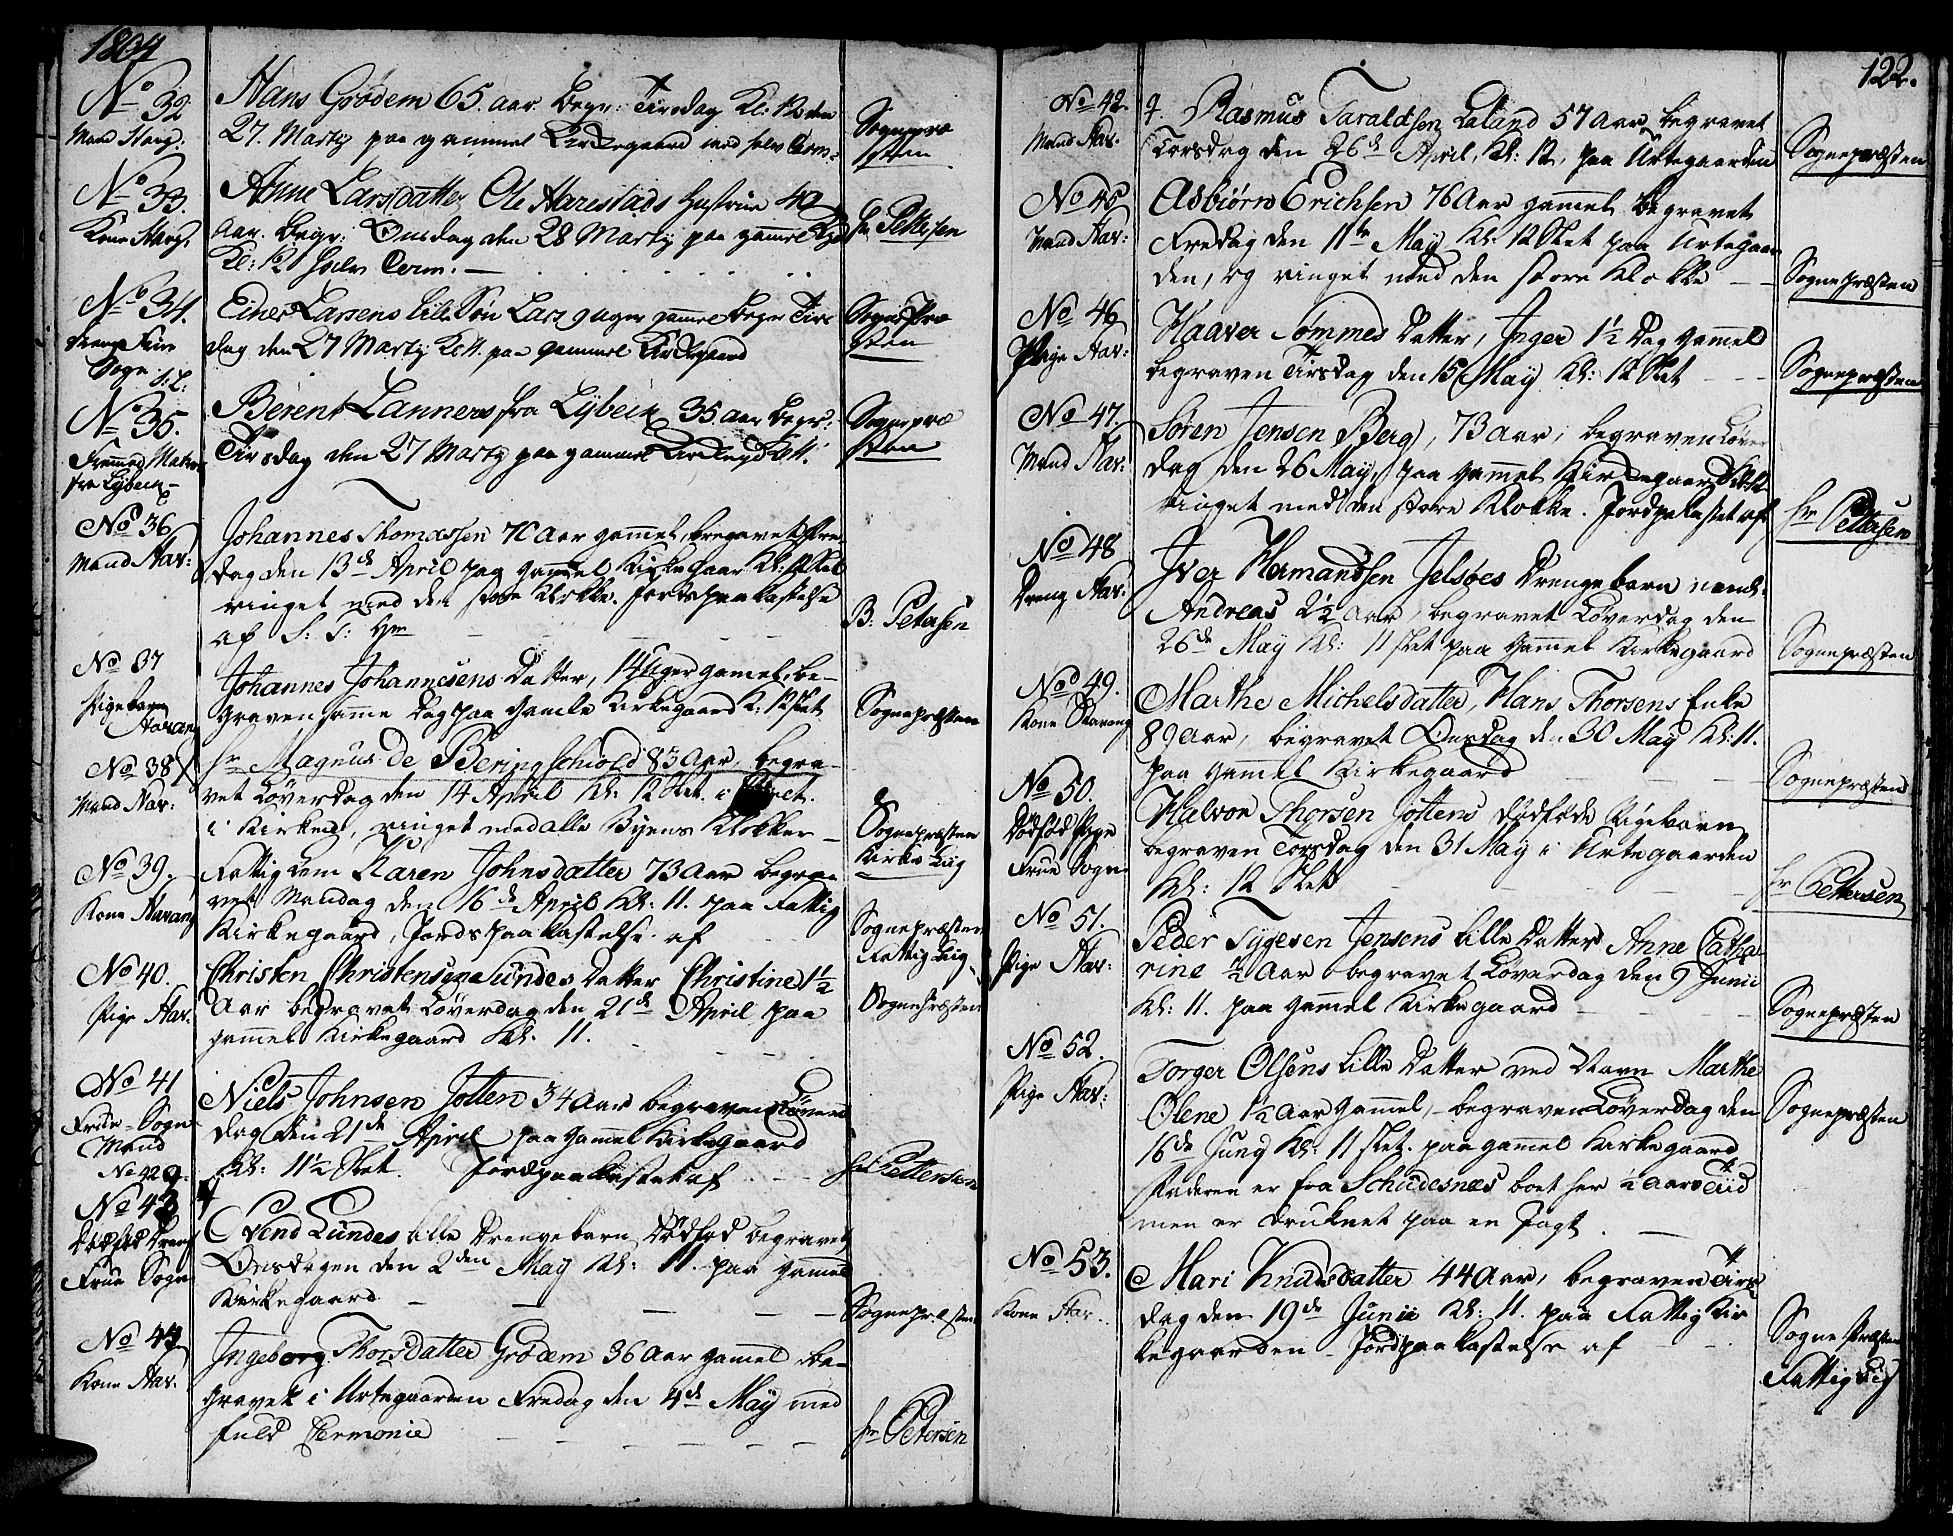 1804
No 32
Mand Stavg:
Hans Grødem 65. aar. Begr: Tirsdag Kl: 12 den
27. Martij paa gammel Kirkegaard med halv Cerm:
Sognepræ
sten
No 33.
Kone Stavg:
Anne Larsdatter Ole Harestads Hustrue 40
aar. Begr: Onsdag den 28 Martij paa gamel
Kl: 12 halv Cerm: —
hr Pettersen
No 34.
Frue
Sogn
Einer Larsens lille Søn Lars 9 uger gammel Begr Tirs
dag den 27 Martij Kl 11. paa gammel Kirkegaard
SognePræ
sten
No 35.
Fremmed Matros
fra Lybeck
Berent Lanners fra Lybeck 35 aar Begr:
Tirsdag den 27 Martij paa gammel Kirkegd Kl 11.
Sognepræ
sten
No 36
Mand Stav:
Johannes Thomassen 70 Aar gamel, begravet Fre-
dag den 13de April paa Gammel Kirkegaar Kl: 12 Slet
ringet med den store Klokke. Jordspaakastelse
af S: T: Hr
B: Petersen
No 37
Pigebarn
Stavang
Johannes Johannesens Datter, 14 Uger gamel, be-
graven samme Dag paa Gamle Kirkegaard Kl: 12 Slet
Sognepræsten
No 38
Mand Stav:
hr Magnus de Beringschiold 83 Aar, begra-
vet Løverdag den 14 April Kl: 12 Slet. i
i Kirken, ringet med alle Byens Klokker —
Sognepræsten
Kirke Liig
No 39.
Kone Stavang
Fattig Lem Karen Johnsdatter 73 Aar begra-
vet Mandag den 16de April Kl: 11. paa Fattig
Kirkegaard, Jordspaakastelse af
Sognepræsten
Fattig Liig
No 40.
Pige Stav.
Christen Christensen Sundes Datter Christine 1½
Aar begravet Løverdag den 21de April paa
gammel Kirkegaard Kl. 11.
Sognepræsten
No 41
Frue-Sogn
Mand
Niels Johnsen Jotten 34 Aar begraven Løver
dag den 21de April paa Gammel Kirkegaard
Kl: 11½ Slet. Jordpaakastet af
hr Pettersen
No 42
No 43
Dødfød Dreng
Frue Sogn
Svend Lundes lille Drengebarn Dødfød begravet
Onsdagen den 2den May Kl: 11. paa gamel
Kirkegaard — — — —
Sognepræsten
No 44
Kone Stav.
Ingeborg Thorsdatter Grødem 36 Aar gamel be-
gravet i Urtegaarden Fredag den 4de May med
fuld Cermonie — — — —
hr Petersen
122.
No 42.
Mand Stav.
Rasmus Taraldsen Laland 57 Aar, begravet
Torsdag den 26de April, Kl: 12, paa Urtegaarden
Sognepræsten
No 45
Mand Stav:
Asbiørn Erichsen 76 Aar gamel begravet
Fredag den 11te May Kl: 12 Slet paa Urtegaar
den, og ringet med den store Klokke — —
Sognepræsten
No 46
Pige Stav:
Haaver Sømmes Datter, Inger 1½ Dag Gammel
begraven Tirsdag den 15 May Kl: 12 Slet — — —
Sognepræsten
No 47.
Mand Stav:
Søren Jensen Berg, 73 Aar, begraven Løver
dag den 26 May, paa Gammel Kirkegaard
ringet med den store Klokke. Jordpekastet af
hr Pettersen
No 48
Dreng Stav:
Iver Hermandsen Jelsøes Drengebarn navnl:
Andreas 2½ Aar, begravet Løverdag den
26de May Kl: 11 slet paa Gammel Kirkegaard
Sognepræsten
No 49.
Kone Stavang
Marthe Michelsdatter, Hans Thorsens Enke
89 Aar, begravet Onsdag den 30 May Kl: 11.
paa Gammel Kirkegaard
Sognepræsten
No 50.
Dødfød Pige
Frue Sogn
Halvor Thorsen Jottens dødføde Pigebarn
begraven Torsdag den 31 May i Urtegaarden
Kl: 12 Slet
hr Pettersen
No 51.
Pige Stav:
Peder Tygesen Jensens lille Datter Anne Catha-
rine ½ Aar begravet Løverdag den 9 Junii
Kl: 11. paa Gammel Kirkegaard
Sognepræsten
No 52.
Pige Stav:
Torger Olsens lille Datter ved Navn Marthe
Olene 1½ Aar Gammel, begraven Løverdag den
16de Junij Kl: 11 slet. paa gammel Kirkegaard
Faderen er fra Schudesnæs boet her ½ Aars Tiid
men er druknet paa en Jagt. —
Sognepræsten
No 53.
Kone Stav.
Mari Knudsdatter 44 Aar, begraven Tirs
dag den 19de Junii Kl: 11. paa Fattig Kir
kegaarden – Jordpaakastelse af — —
Sognepræsten
Fattig Lig